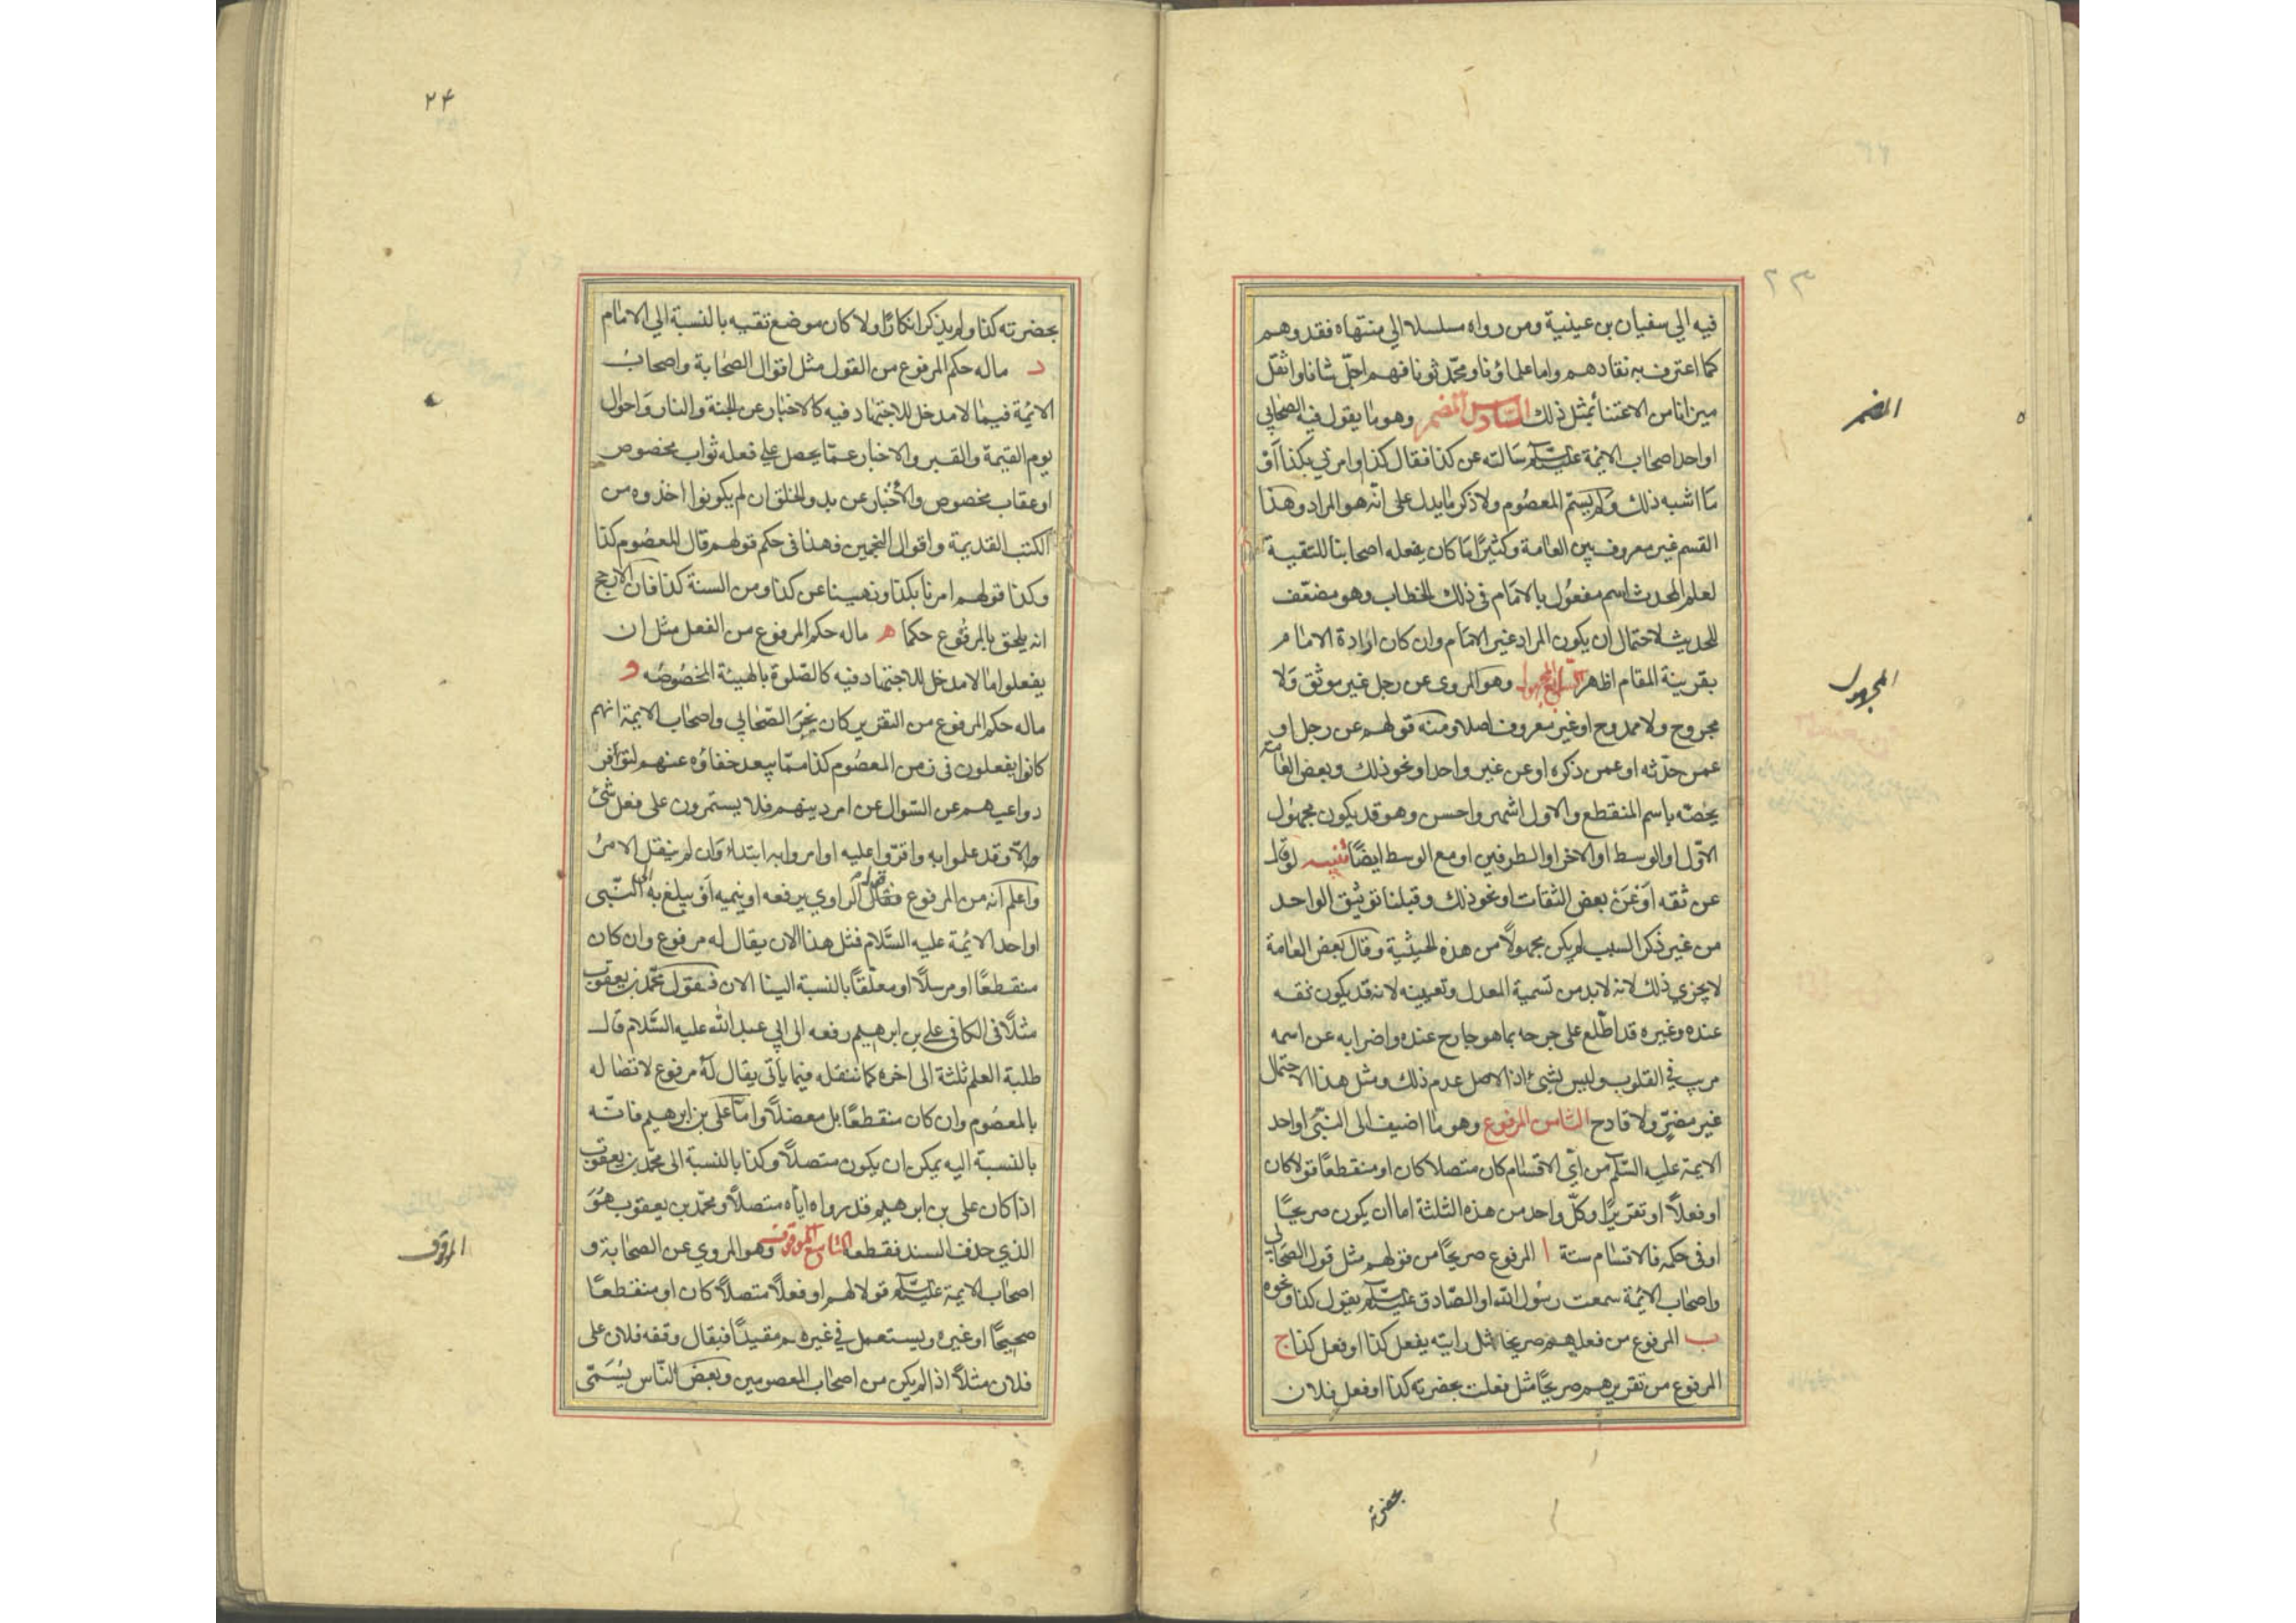 فيه الي سفيان بن عيينية ومن رواه مسلسلا الي منتهاه فقد وهم
كما اعترف به نقادهم واما علماؤنا ومحدثونا فهم اجل شانا واثقل
ميزانا من الاعتنا بمثل ذلك السادس المضمر وهو ما يقول فيه الصحابي
او احد اصحاب الائمة عليهم السلام سالته عن كذا فقال كذا وامرني بكذا او
ما اشبه ذلك ولم يسم المعصوم ولا ذكر ما يدل على انه هو المراد وهذا
القسم غير معروف بين العامة وكثيرا ما كان يفعله اصحابنا للتقية
لعلم المحدث اسم مفعول بالامام في ذلك الخطاب وهو مضعف
للحديث لاحتمال ان يكون المراد غير الامام وان كان ارادة الامام
بقرينة المقام اظهر السابع المجهول وهو المروي عن رجل غير موثق ولا
مجروح ولا ممدوح او غير معروف اصلا ومنه قولهم عن رجل او
عمن حدثه او عمن ذكره او عن غير واحد او نحو ذلك وبعض العامة
يخصه باسم المنقطع والاول اشهر واحسن وهو قد يكون مجهول
الاول او الوسط او الاخر او الطرفين او مع الوسط ايضا تنبيه لو قال
عن ثقه او عن بعض الثقات او نحو ذلك وقبلنا توثيق الواحد
من غير ذكر السبب لم يكن مجهولا من هذه الحيثية وقال بعض العامة
لا يجزي ذلك لانه لا بد من تسمية المعدل وتعيينه لانه قد يكون ثقه
عنده وغيره قد اطلع على جرحه بما هو جارح عنده واضرابه عن اسمه
مريب في القلوب وليس بشيء اذ الاصل عدم ذلك ومثل هذا الاحتمال
غير مضر ولا قادح الثامن المرفوع وهو ما اضيف الى النبي او احد
الايمة عليه السلم من اي الاقسام كان متصلا كان او منقطعا قولا كان
او فعلا او تقريرا وكل واحد من هذه الثلثة اما ان يكون صريحا
او في حكمه فالاقسام ستة ا المرفوع صريحا من قولهم مثل قول الصحابي
واصحاب الائمة سمعت رسول الله او الصادق عليهم السلام يقول كذا ونحوه
ب المرفوع من فعلهم صريحا مثل رايته يفعل كذا او فعل كذا ج
المرفوع من تقريرهم صريحا مثل فعلت بحضرته كذا او فعل فلان
بحضرته
المضمر
المجهول
٢٣
٢۴
بحضرته كذا ولم يذكر انكارا ولا كان موضع تقيه بالنسبة الي الامام
د ماله حكم المرفوع من القول مثل اقوال الصحابة واصحاب
الائمة فيما لا مدخل للاجتهاد فيه كالاخبار عن الجنة والنار واحوال
يوم القيمة والقبر والاخبار عما يحصل علي فعله ثواب مخصوص
او عقاب مخصوص والاخبار عن بدو الخلق ان لم يكونوا اخذوه من
الكتب القديمة واقوال المنجمين فهذا في حكم قولهم قال المعصوم كذا
وكذا قولهم امرنا بكذا ونهينا عن كذا ومن السنة كذا فان الارجح
انه يلحق بالمرفوع حكما ه ماله حكم المرفوع من الفعل مثل ان
يفعلوا ما لا مدخل للاجتهاد فيه كالصلوة بالهيئة المخصوصه و
ماله حكم المرفوع من التقرير كان يخبر الصحابي واصحاب الايمة انهم
كانوا يفعلون في زمن المعصوم كذا مما يبعد خفاؤه عنهم لتوافر
دواعيهم عن السوال عن امر دينهم فلا يستمرون على فعل شئ
والا وقد علموا به واقروا عليه او امروا به ابتداء وان لم ينقل الامر
واعلم انه من المرفوع قول الراوي يرفعه او ينميه او يبلغ به الى النبي
او احد الايمة عليه السلام فمثل هذا الان يقال له مرفوع وان كان
منقطعا او مرسلا او معلقا بالنسبة الينا الان فنقول محمد بن يعقوب
مثلا في الكافي علي بن ابرهيم رفعه الى ابي عبد الله عليه السلام قال
طلبة العلم ثلثة الى اخره كما ننقله فيما يأتي يقال له مرفوع لاتصاله
بالمعصوم وان كان منقطعا بل معضلا واما علي بن ابرهيم فانه
بالنسبة اليه يمكن ان يكون متصلا وكذا بالنسبة الى محمد بن يعقوب
اذا كان علي بن ابرهيم قد رواه اياه متصلا ومحمد بن يعقوب هو
الذي حذف السند فقطعه التاسع الموقوف وهو المروي عن الصحابة و
اصحاب الايمة عليهم السلام قولا لهم او فعلا متصلا كان او منقطعا
صحيحا او غيره ويستعمل في غيرهم مقيدا فيقال وقفه فلان على
فلان مثلا اذا لم يكن من اصحاب المعصومين وبعض الناس يسمى
الموقوف